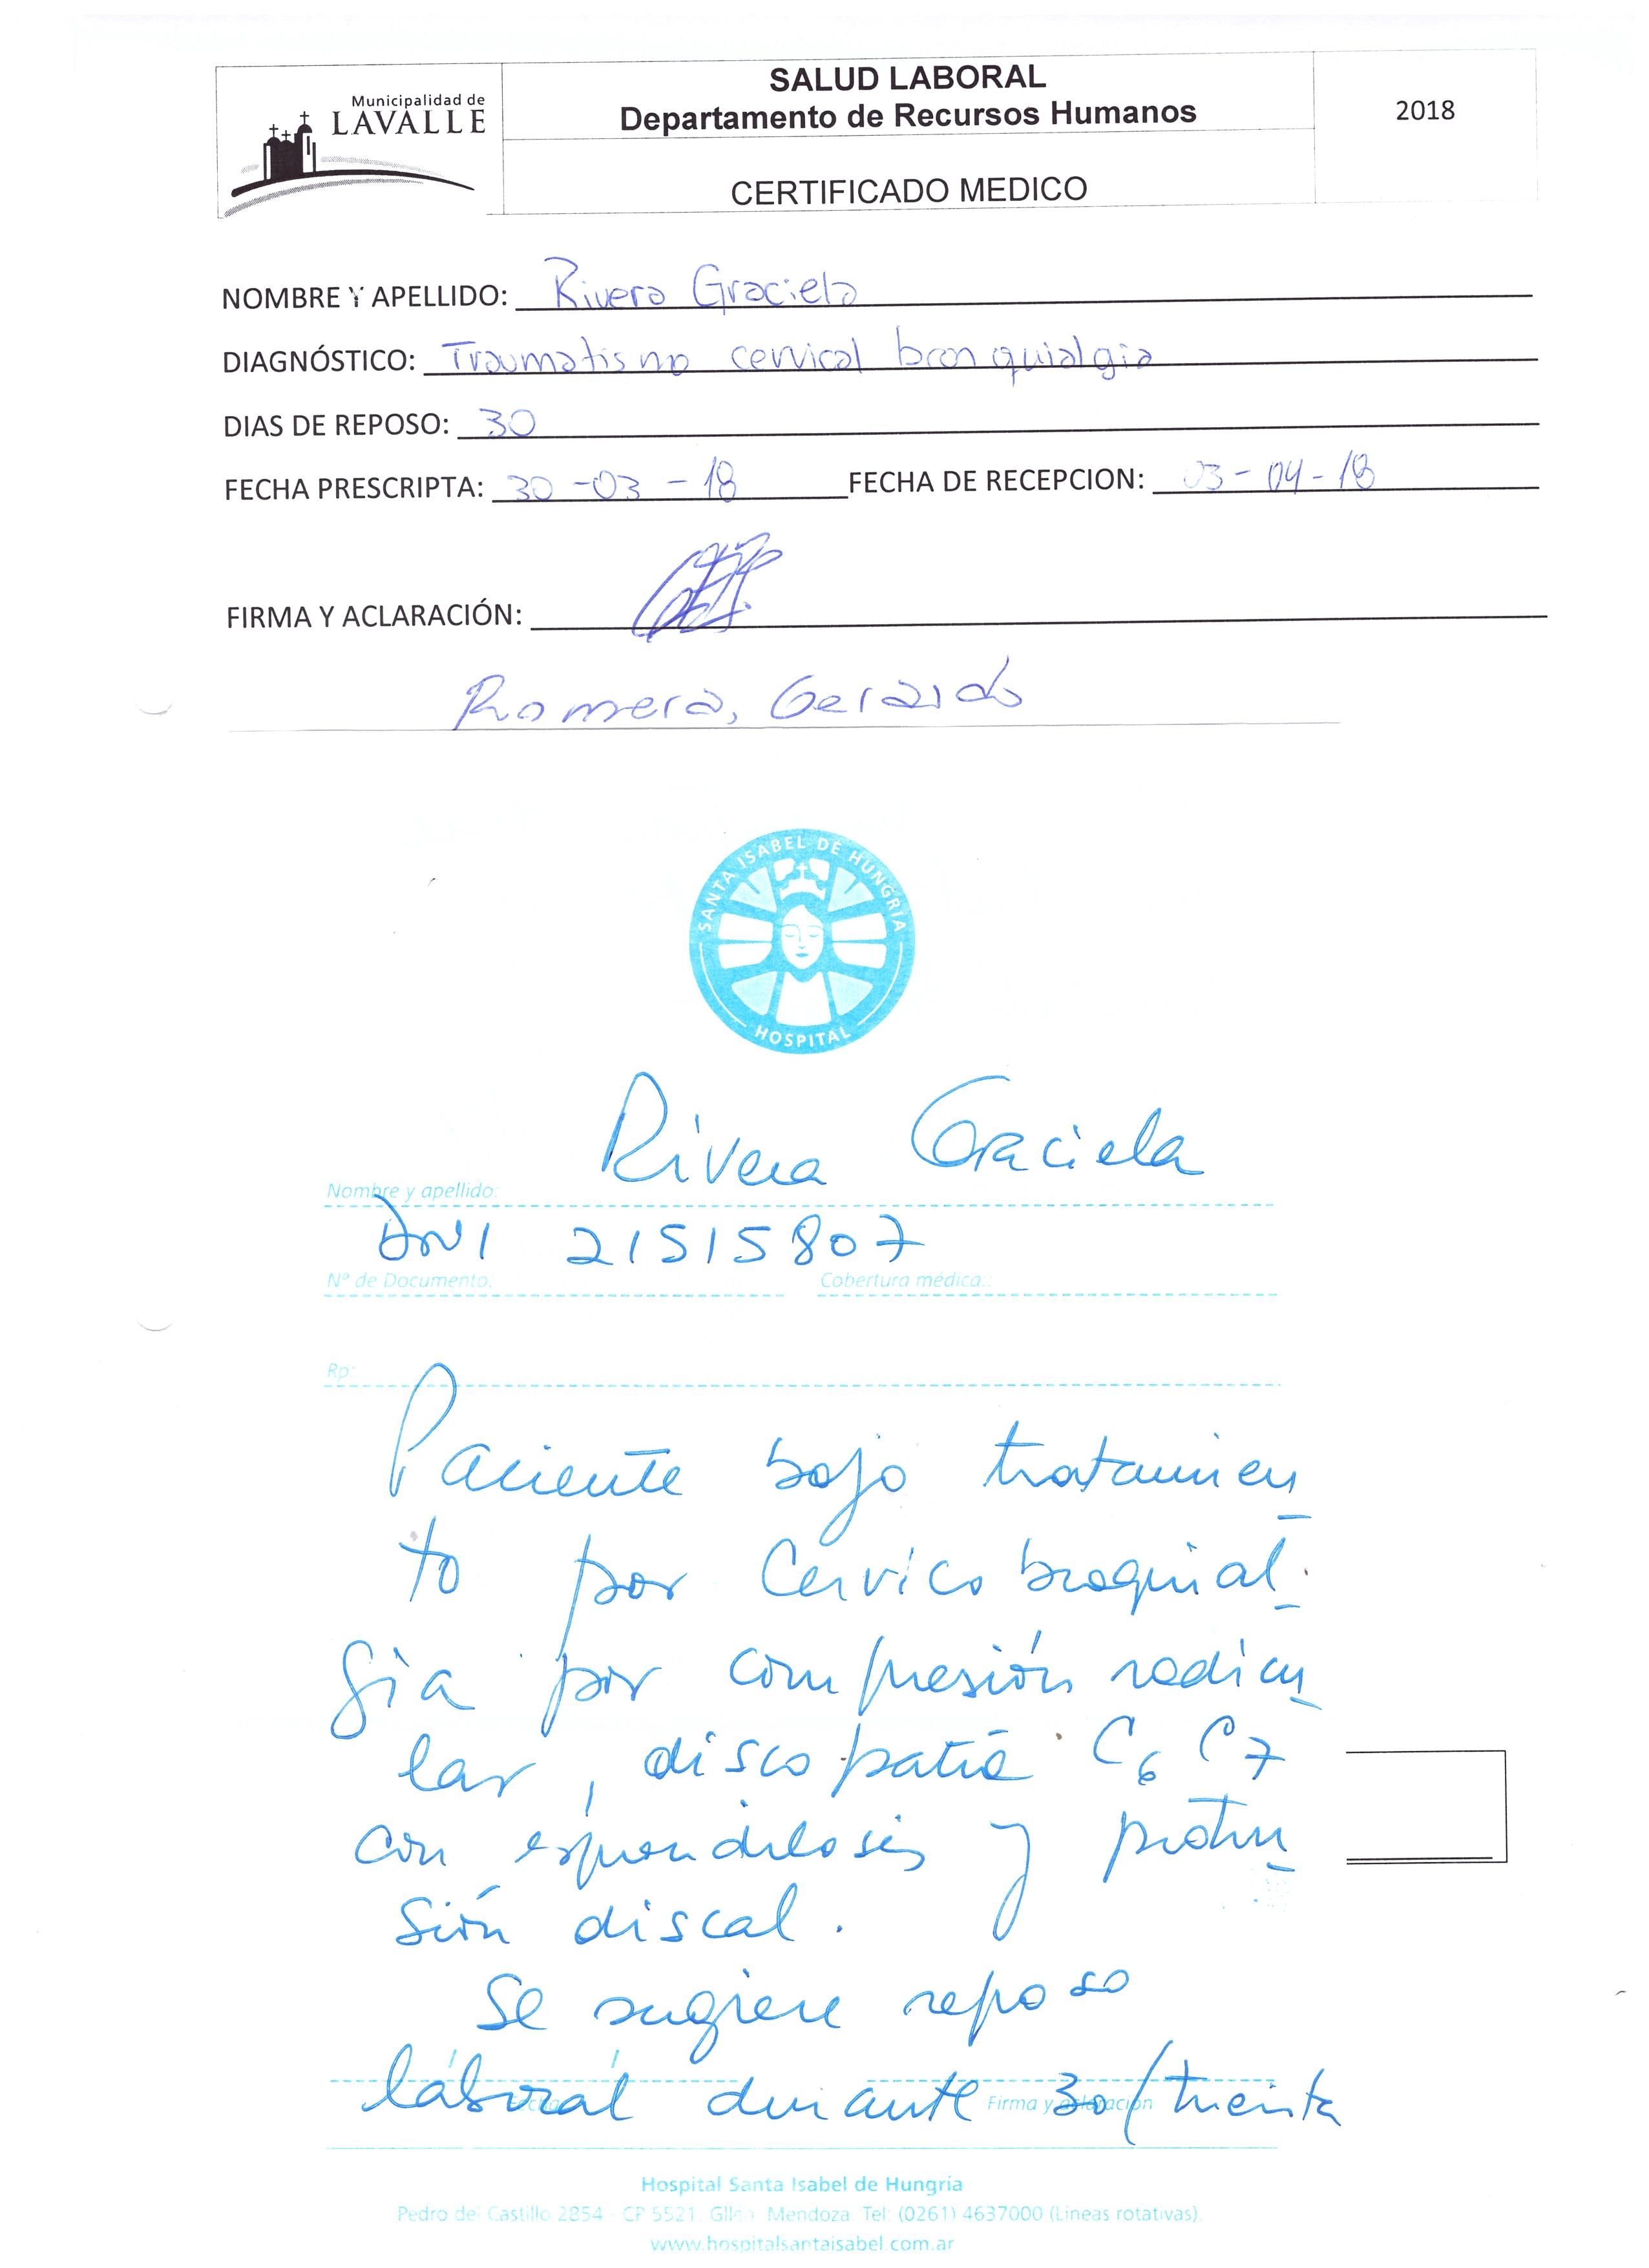 Municipalidad de
LAVALLE
SALUD LABORAL
Departamento de Recursos Humanos
2018
CERTIFICADO MEDICO
NOMBRE Y APELLIDO: Rivera Graciela
DIAGNÓSTICO: Traumatismo cervical bronquialgia
DIAS DE REPOSO: 30
FECHA PRESCRIPTA: 30-03-18 FECHA DE RECEPCION: 03-04-18
FIRMA Y ACLARACIÓN:
Romera, Gerardo
SANTA ISABEL DE HUNGRÍA
HOSPITAL
Rivera Graciela
Nombre y apellido:
DNI 21515807
Nº de Documento. Cobertura médica.:
Rp:
Paciente bajo tratamien
to por Cervicobraquial
gia por compresión radicu
lar, discopatía C6 C7
con espondilosis y protru
sión discal.
Se sugiere reposo
laboral durante 30/treinta
Fecha Firma y aclaración
Hospital Santa Isabel de Hungría
Pedro del Castillo 2854 - CP 5521. Gllen Mendoza Tel: (0261) 4637000 (Líneas rotativas).
www.hospitalsantaisabel.com.ar